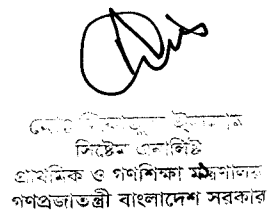 মোঃ ইসলাম
সিস্টেম এনালিস্ট
প্রাথমিক ও গণশিক্ষা মন্ত্রণালয়
গণপ্রজাতন্ত্রী বাংলাদেশ সরকার